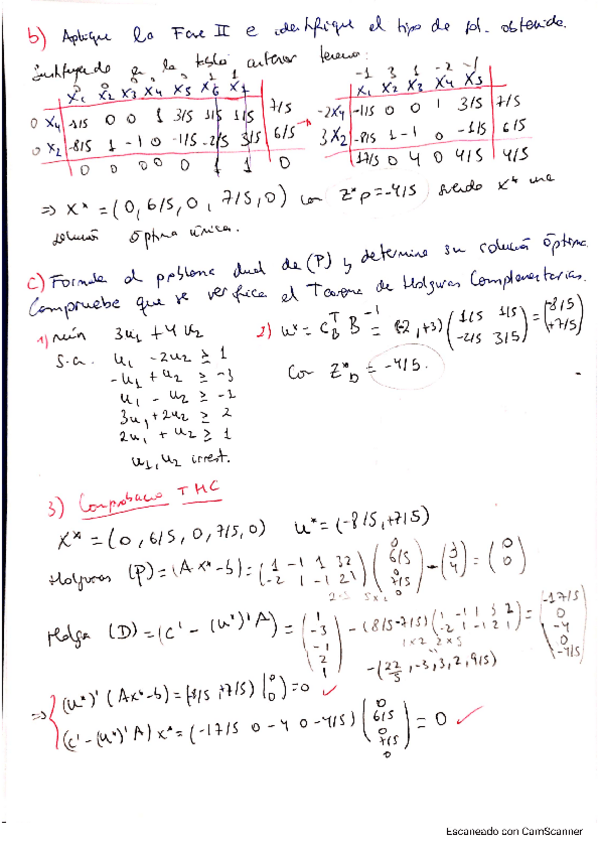 b) Aplique la Fase II e identifique el tipo de sol. obtenida.
Sustituyendo en la tabla anterior tenemos:
0 0 0 0 0 1 1
x1 x2 x3 x4 x5 x6 x7
0 x4 -1/5 0 0 1 3/5 1/5 1/5 7/5
0 x2 -8/5 1 -1 0 -1/5 -2/5 3/5 6/5
0 0 0 0 0 1 1 0
-1 3 1 -2 -1
x1 x2 x3 x4 x5
-2 x4 -1/5 0 0 1 3/5 7/5
3 x2 -8/5 1 -1 0 -1/5 6/5
17/5 0 4 0 4/5 4/5
⇒ x* = (0, 6/5, 0, 7/5, 0) con Z*p = -4/5 siendo x* una
solución óptima única.
c) Formule el problema dual de (P) y determine su solución óptima.
Compruebe que se verifica el Teorema de Holguras Complementarias.
1) mín 3u1 + 4u2
s.a. u1 - 2u2 ≥ 1
-u1 + u2 ≥ -3
u1 - u2 ≥ -1
3u1 + 2u2 ≥ 2
2u1 + u2 ≥ 1
u1, u2 irrest.
2) u* = C_B^T B^-1 = (-2, +3) (1/5 1/5 / -2/5 3/5) = (-8/5 / +7/5)
Con Z*_D = -4/5.
3) Comprobación THC
x* = (0, 6/5, 0, 7/5, 0) u* = (-8/5, +7/5)
Holguras (P) = (Ax* - b) = (1 -1 1 3 2 / -2 1 -1 2 1) (0 6/5 0 7/5 0) - (3 4) = (0 0)
2·5 5x1
Holgura (D) = (c' - (u*)' A) = (1 -3 -1 2 1) - (8/5 -7/5) (1 -1 1 3 2 / -2 1 -1 2 1) = (-17/5 0 -4 0 -4/5)
1x2 2x5
-(22/5, -3, 3, 2, 9/5)
⇒ (u*)' (Ax* - b) = (-8/5 +7/5) (0 0) = 0 ✓
(c' - (u*)' A) x* = (-17/5 0 -4 0 -4/5) (0 6/5 0 7/5 0) = 0 ✓
Escaneado con CamScanner